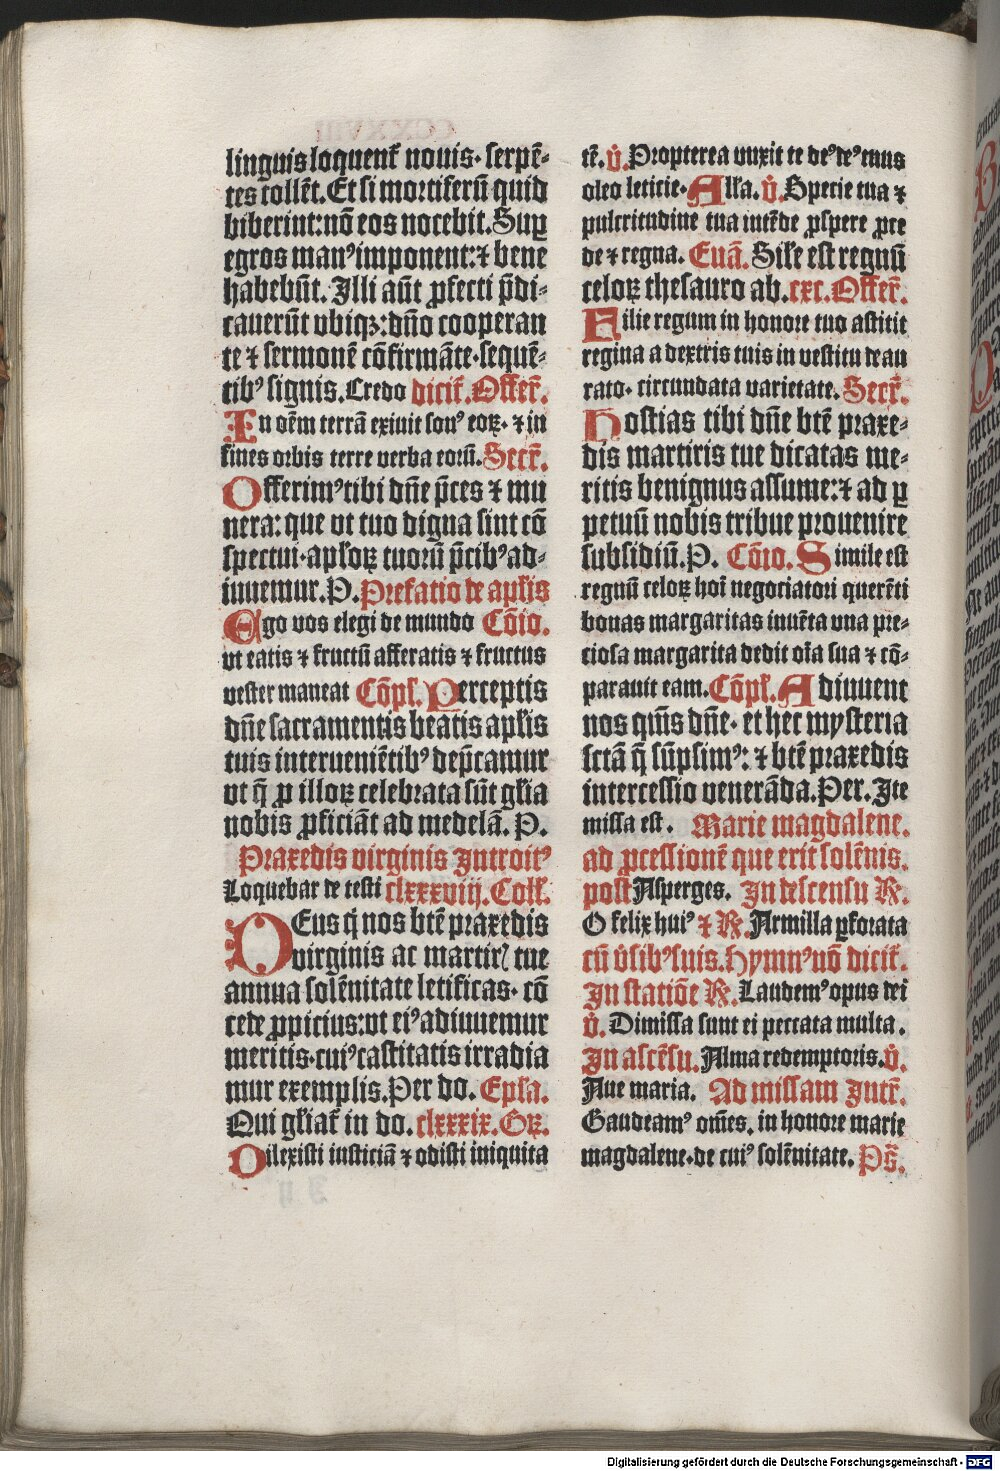 linguis loquent᷑ nouis· serpē-
tes tollēt. Et si mortiferū quid
biberint: nō eos nocebit. Suꝑ
egros manꝰ imponent: ⁊ bene
habebūt. Illi aūt ꝓfecti p̄di-
cauerūt vbiqꝫ: dn̄o cooperan
te ⁊ sermonē cōfirmāte· sequē-
tibꝰ signis. Credo dicit᷑. Offer̄.
In oēm terrā exiuit sonꝰ eoꝝ· ⁊ in
fines orbis terre verba eorū. Secr̄.
Offerimꝰ tibi dn̄e p̄ces ⁊ mu
nera: que vt tuo digna sint cō
spectui· apl̄oꝝ tuorū p̄cibꝰ ad-
iuuemur. P. Prefatio de apl̄is
Ego vos elegi de mundo Cōio.
vt eatis ⁊ fructū afferatis ⁊ fructus
vester maneat Cōpl̄. Perceptis
dn̄e sacramentis beatis apl̄is
tuis interueniētibꝰ dep̄camur
vt q̄ ꝓ illoꝝ celebrata sūt gl̄ia
nobis ꝓficiāt ad medelā. P.
Praxedis virginis Introitꝰ
Loquebar de testi clxxxviij. Coll̄.
DEus q̇ nos btē praxedis
virginis ac martir̄ tue
annua solēnitate letificas· cō
cede ꝓpicius: vt eiꝰ adiuuemur
meritis· cuiꝰ castitatis irradia
mur exemplis. Per do. Epl̄a.
Qui gl̄iat᷑ in do. clxxxix. Gꝝ.
Dilexisti iusticiā ⁊ odisti iniquita
tē. v̇. Propterea vnxit te deꝰ deꝰ tuus
oleo leticie· All̄a. v̇. Specie tua ⁊
pulcritudine tua intēde ꝓspere ꝓce
de ⁊ regna. Euā. Sil̄e est regnū
celoꝝ thesauro ab. cxc. Offer̄.
Filie regum in honore tuo astitit
regina a dextris tuis in vestitu deau
rato· circundata varietate. Secr̄.
Hostias tibi dn̄e btē praxe-
dis martiris tue dicatas me-
ritis benignus assume: ⁊ ad ꝑ
petuū nobis tribue prouenire
subsidiū. P. Cōio. Simile est
regnū celoꝝ hoī negociatori querēti
bonas margaritas inuēta vna pre-
ciosa margarita dedit oīa sua ⁊ cō-
parauit eam. Cōpl̄. Adiuuent
nos qm̄s dn̄e· et hec mysteria
sctā q̄ sūpsimꝰ: ⁊ btē praxedis
intercessio venerāda. Per. Ite
missa est. Marie magdalene.
ad ꝓcessionē que erit solēnis.
post Asperges. In descensu ℟.
O felix huiꝰ ⁊ ℟. Armilla ꝑforata
cū v̇sibꝰ suis. Hymnꝰ nō dicit᷑.
In statiōe ℟. Laudemꝰ opus dei
v̇. Dimissa sunt ei peccata multa.
In ascēsu. Alma redemptoris. v̇.
Aue maria. Ad missam Intr̄.
Gaudeamꝰ om̄es. in honore marie
magdalene· de cuiꝰ solēnitate. Ps̄.
Digitalisierung gefördert durch die Deutsche Forschungsgemeinschaft - DFG